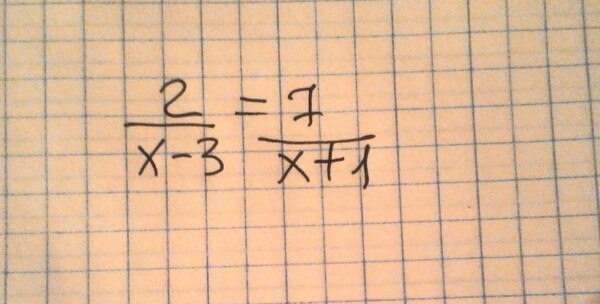 2/(x-3) = 7/(x+1)